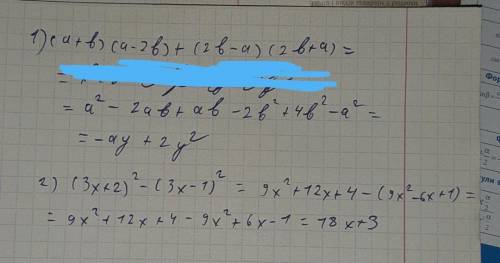 1) (a+b)(a-2b)+(2b-a)(2b+a)=
= a² - 2ab + ab - 2b² + 4b² - a² =
= -ay + 2y²
2) (3x+2)² - (3x-1)² = 9x² + 12x + 4 - (9x² - 6x + 1) =
= 9x² + 12x + 4 - 9x² + 6x - 1 = 18x + 3